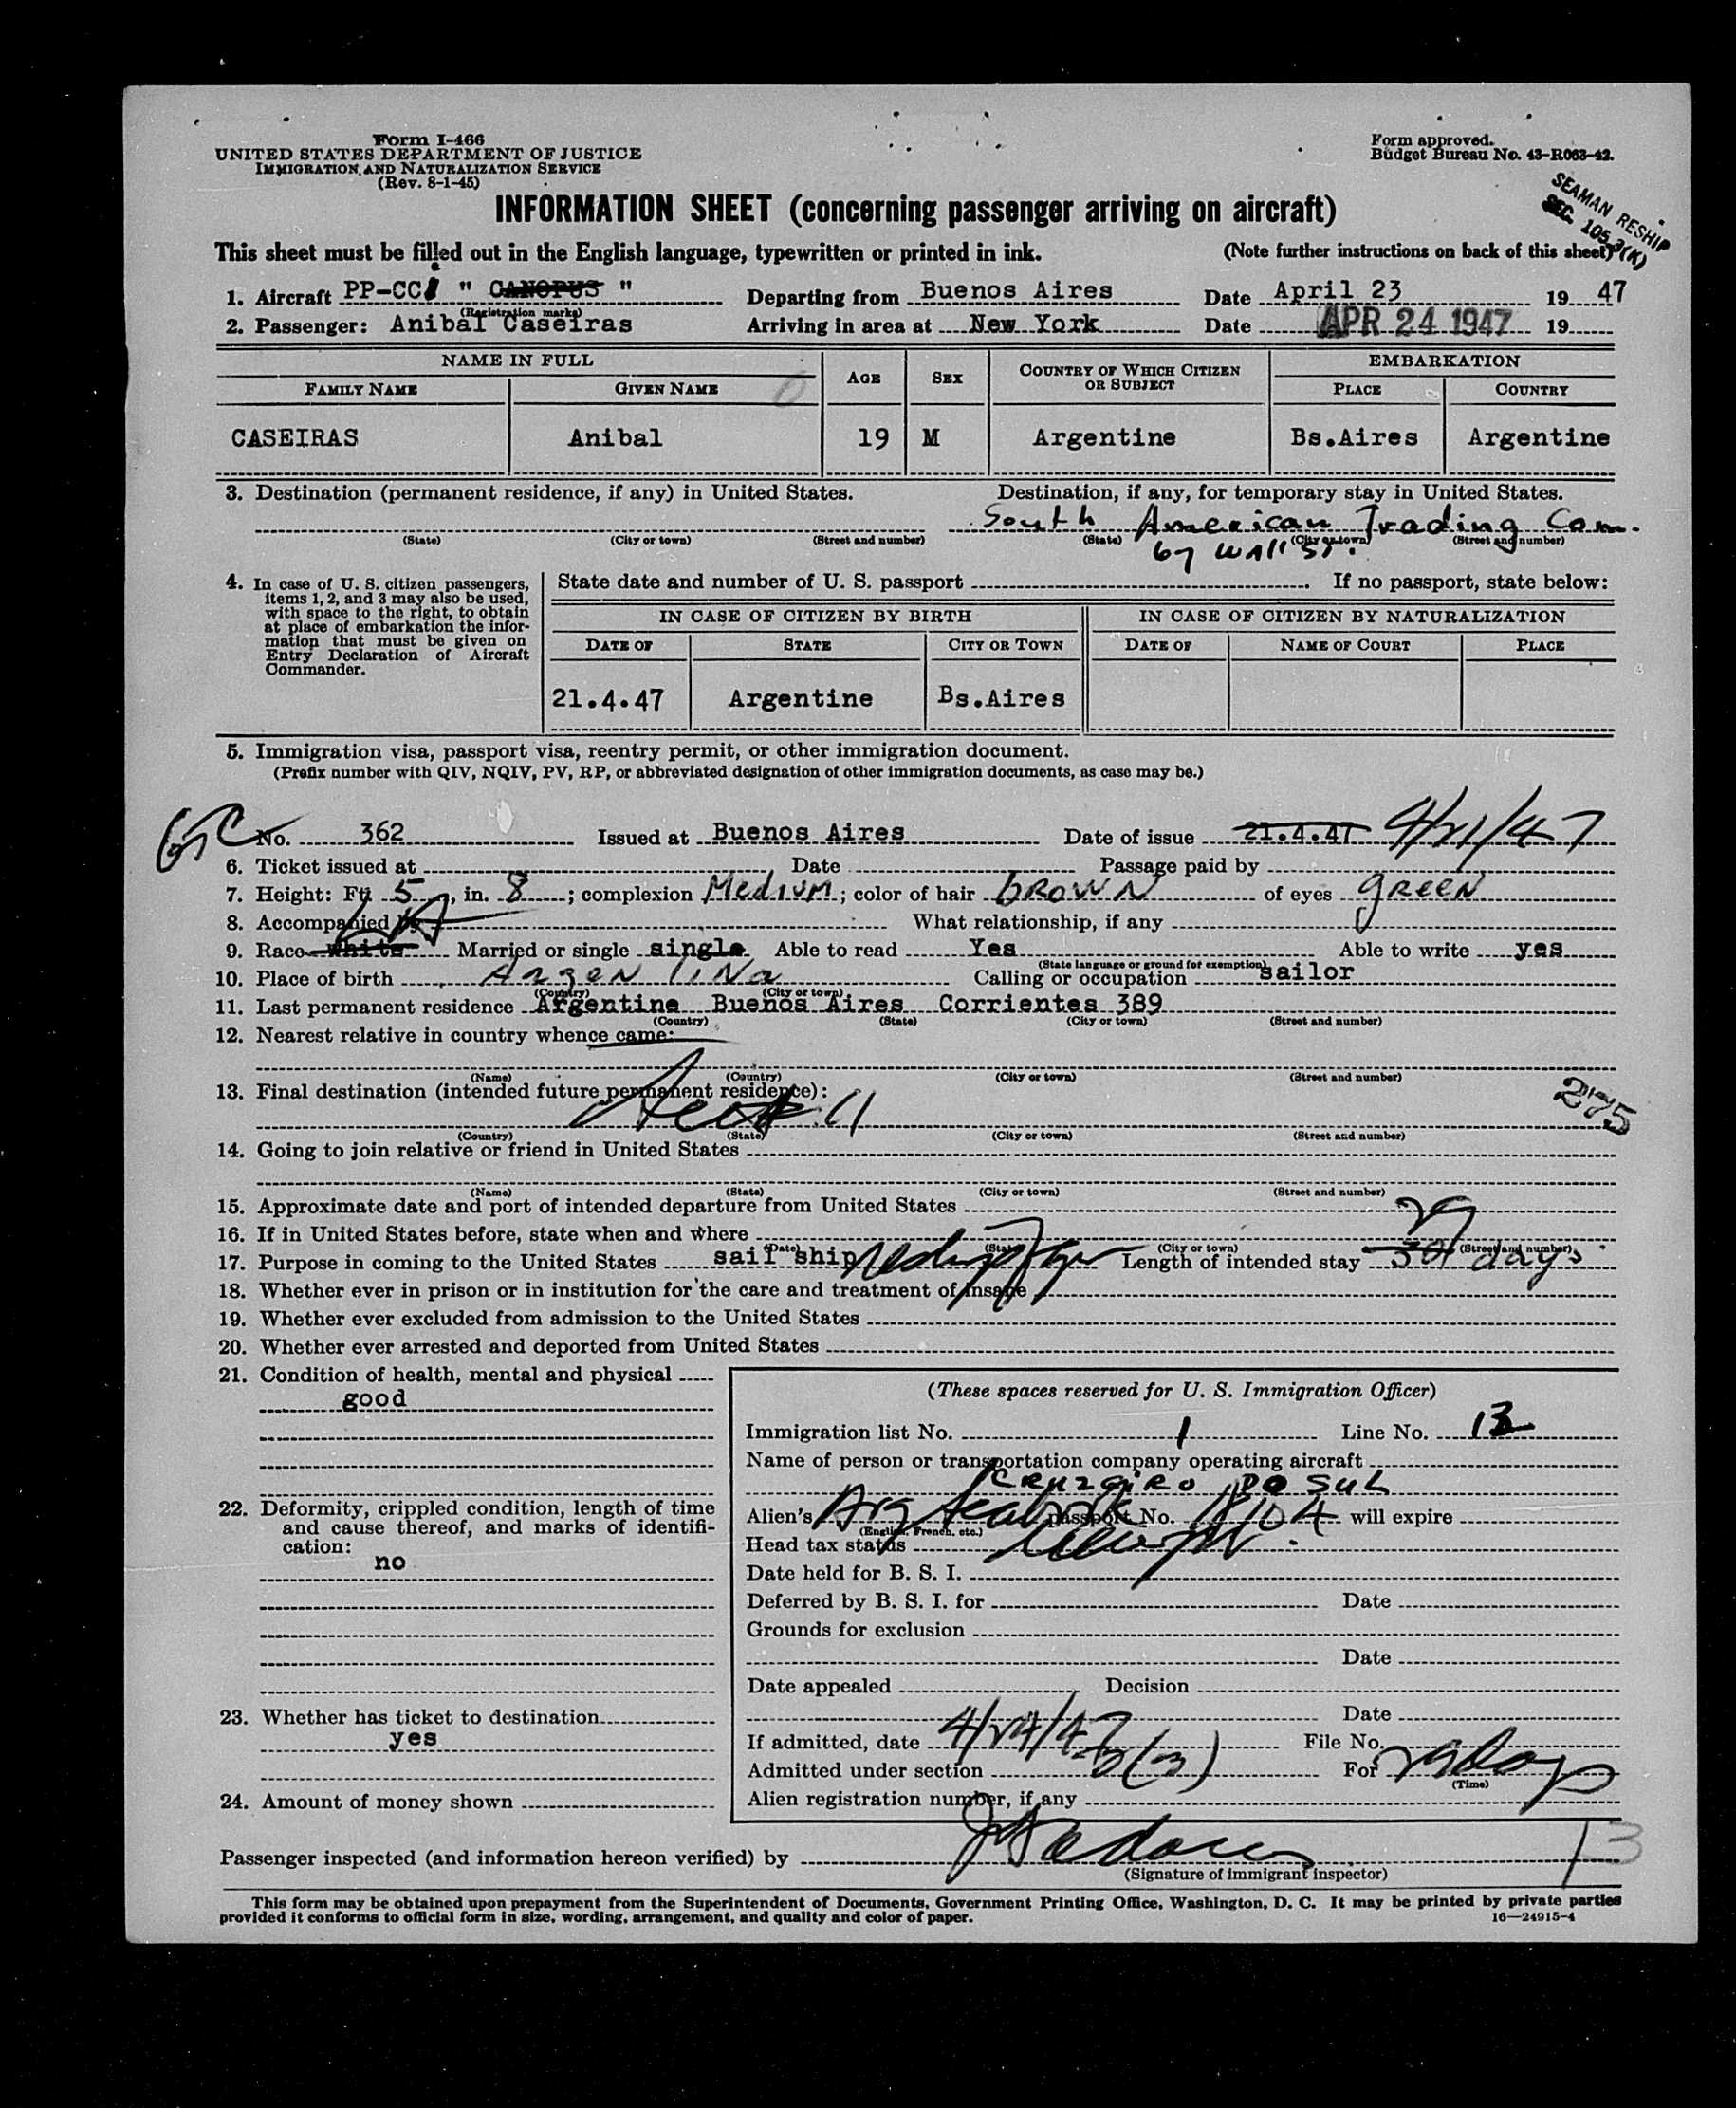 Form I-466
UNITED STATES DEPARTMENT OF JUSTICE
IMMIGRATION AND NATURALIZATION SERVICE
(Rev. 8-1-45)
Form approved.
Budget Bureau No. 43-R063-42.
SEAMAN RESHIP
SEC. 105.3(K)
INFORMATION SHEET (concerning passenger arriving on aircraft)
This sheet must be filled out in the English language, typewritten or printed in ink. (Note further instructions on back of this sheet)
1. Aircraft PP-CC " CANOPUS " Departing from Buenos Aires Date April 23 1947
(Registration marks)
2. Passenger: Anibal Caseiras Arriving in area at New York Date APR 24 1947 19
NAME IN FULL AGE SEX COUNTRY OF WHICH CITIZEN OR SUBJECT EMBARKATION
FAMILY NAME GIVEN NAME PLACE COUNTRY
CASEIRAS Anibal 19 M Argentine Bs.Aires Argentine
3. Destination (permanent residence, if any) in United States. Destination, if any, for temporary stay in United States.
South American Trading Com.
(State) (City or town) (Street and number) (State) (City or town) (Street and number)
67 WAll St.
4. In case of U. S. citizen passengers, items 1, 2, and 3 may also be used, with space to the right, to obtain at place of embarkation the information that must be given on Entry Declaration of Aircraft Commander.
State date and number of U. S. passport If no passport, state below:
IN CASE OF CITIZEN BY BIRTH IN CASE OF CITIZEN BY NATURALIZATION
DATE OF STATE CITY OR TOWN DATE OF NAME OF COURT PLACE
21.4.47 Argentine Bs.Aires
5. Immigration visa, passport visa, reentry permit, or other immigration document.
(Prefix number with QIV, NQIV, PV, RP, or abbreviated designation of other immigration documents, as case may be.)
No. 362 Issued at Buenos Aires Date of issue 21.4.47 4/21/47
6. Ticket issued at Date Passage paid by
7. Height: Ft. 5, in. 8; complexion MedIUM; color of hair bROWN of eyes gREEN
8. Accompanied by What relationship, if any
9. Race White Married or single single Able to read Yes Able to write yes
(State language or ground for exemption)
10. Place of birth ArgeNtiNa Calling or occupation sailor
(Country) (City or town)
11. Last permanent residence Argentine Buenos Aires Corrientes 389
(Country) (State) (City or town) (Street and number)
12. Nearest relative in country whence came:
(Name) (Country) (City or town) (Street and number)
13. Final destination (intended future permanent residence):
275
(Country) (State) (City or town) (Street and number)
14. Going to join relative or friend in United States
(Name) (State) (City or town) (Street and number)
15. Approximate date and port of intended departure from United States
16. If in United States before, state when and where
(Date) (State) (City or town) (Street and number)
17. Purpose in coming to the United States sail ship Length of intended stay 30 29 days
18. Whether ever in prison or in institution for the care and treatment of insane
19. Whether ever excluded from admission to the United States
20. Whether ever arrested and deported from United States
21. Condition of health, mental and physical
good
22. Deformity, crippled condition, length of time and cause thereof, and marks of identification:
no
23. Whether has ticket to destination
yes
24. Amount of money shown
(These spaces reserved for U. S. Immigration Officer)
Immigration list No. 1 Line No. 13
Name of person or transportation company operating aircraft
CRUZEIRO DO SUL
Alien's Arg passport No. will expire
(English, French, etc.)
Head tax status
Date held for B. S. I.
Deferred by B. S. I. for Date
Grounds for exclusion
Date
Date appealed Decision
Date
If admitted, date 4/24/47 File No.
Admitted under section 3(3) For 29 days
(Time)
Alien registration number, if any
Passenger inspected (and information hereon verified) by
(Signature of immigrant inspector)
13
This form may be obtained upon prepayment from the Superintendent of Documents, Government Printing Office, Washington, D. C. It may be printed by private parties
provided it conforms to official form in size, wording, arrangement, and quality and color of paper. 16—24915-4